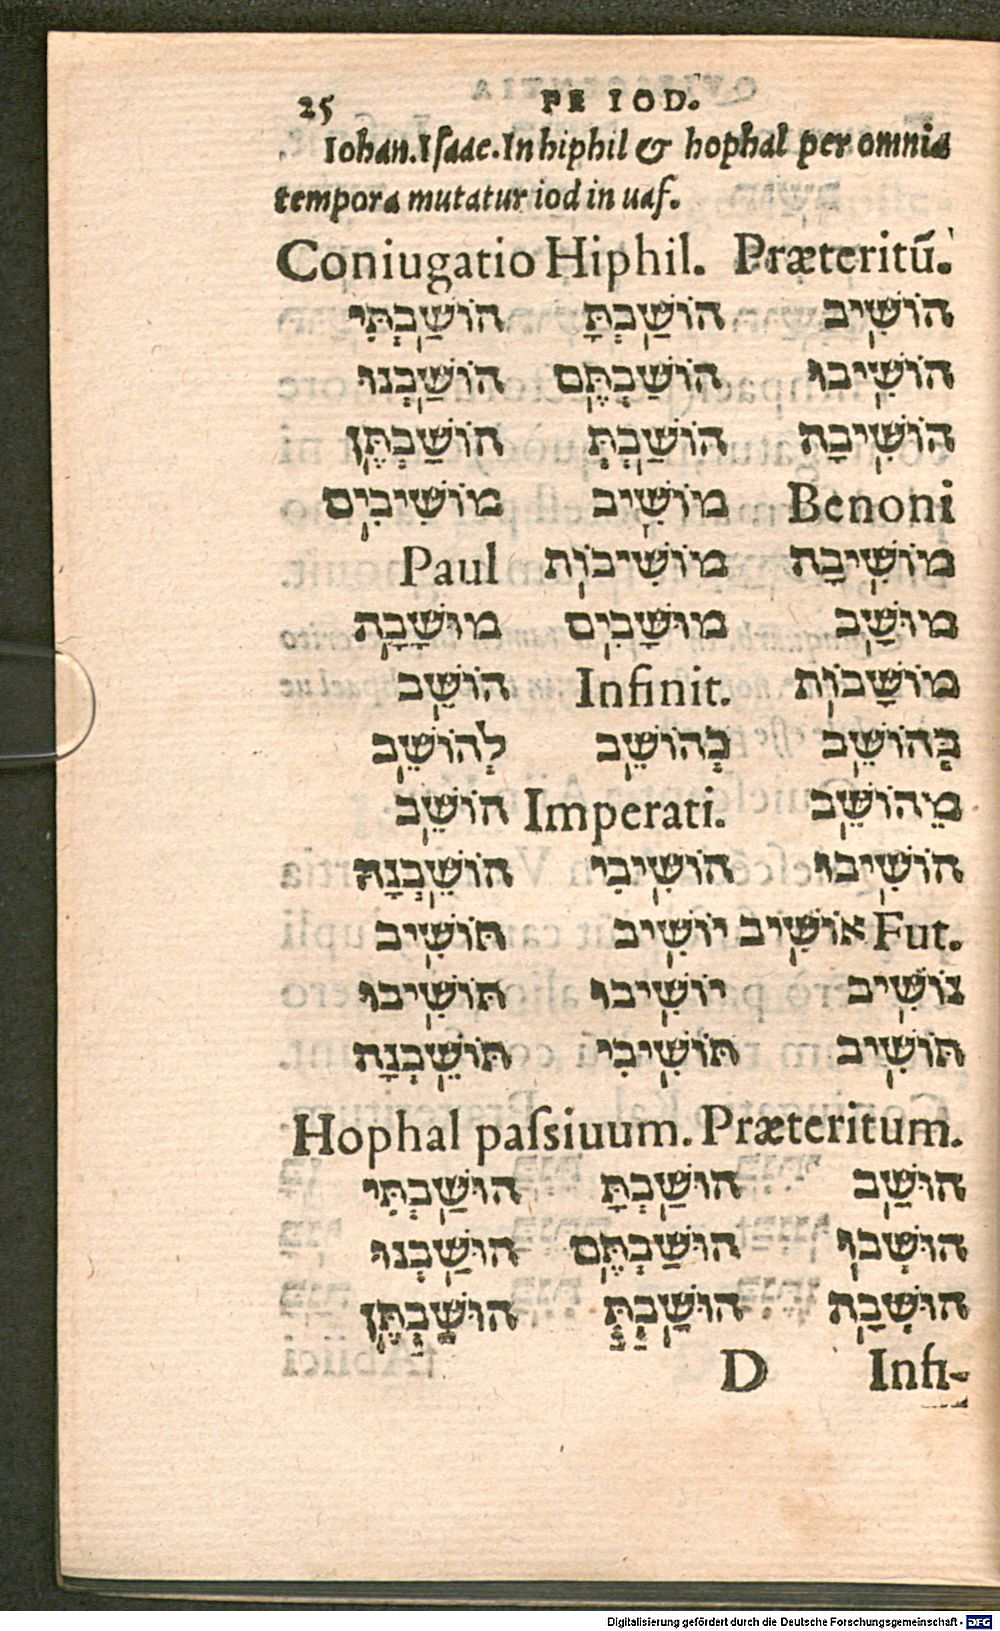 25 PE IOD.
Iohan. Isaac. In hiphil & hophal per omnia
tempora mutatur iod in uaf.
Coniugatio Hiphil. Præteritũ.
הוֹשִׁיב הוֹשַׁבְתָּ הוֹשַׁבְתִּי
הוֹשִׁיבוּ הוֹשַׁבְתֶּם הוֹשַׁבְנוּ
הוֹשִׁיבָה הוֹשַׁבְתְּ הוֹשַׁבְתֶּן
Benoni מוֹשִׁיב מוֹשִׁיבִים
מוֹשִׁיבָה מוֹשִׁיבוֹת Paul
מוּשָׁב מוּשָׁבִים מוּשָׁבָה
מוּשָׁבוֹת Infinit. הוֹשֵׁב
בְּהוֹשֵׁב כְּהוֹשֵׁב לְהוֹשֵׁב
מֵהוֹשֵׁב Imperati. הוֹשֵׁב
הוֹשִׁיבוּ הוֹשִׁיבִי הוֹשֵׁבְנָה
Fut. אוֹשִׁיב יוֹשִׁיב תּוֹשִׁיב
נוֹשִׁיב יוֹשִׁיבוּ תּוֹשִׁיבוּ
תּוֹשִׁיב תּוֹשִׁיבִי תּוֹשֵׁבְנָה
Hophal paſsiuum. Præteritum.
הוּשַׁב הוּשַׁבְתָּ הוּשַׁבְתִּי
הוּשְׁבוּ הוּשַׁבְתֶּם הוּשַׁבְנוּ
הוּשְׁבָה הוּשַׁבְתְּ הוּשַׁבְתֶּן
D Infi-
Digitalisierung gefördert durch die Deutsche Forschungsgemeinschaft - DFG